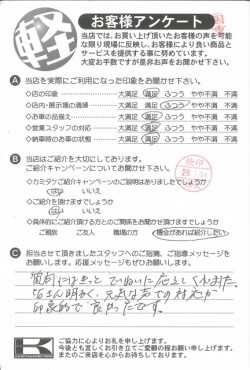 軽
お客様アンケート
当店では、お買い上げ頂いたお客様の声を可能
な限り現場に反映し、お客様により良い商品と
サービスを提供する事に努めています。
大変お手数ですが是非お声をお聞かせ下さい。
A 当店を実際にご利用になった印象をお聞かせ下さい。
◇店の印象 大満足 満足 ふつう やや不満 不満
◇店内・展示場の清掃 大満足 満足 ふつう やや不満 不満
◇お車の品揃え 大満足 満足 ふつう やや不満 不満
◇営業スタッフの対応 大満足 満足 ふつう やや不満 不満
◇納車時のお車の状態 大満足 満足 ふつう やや不満 不満
B 当店はご紹介を大切にしております。
ご紹介キャンペーンについてお聞かせ下さい。
◇カミタケご紹介キャンペーンのご説明はありましたでしょうか
はい いいえ
◇ご紹介を頂けますでしょうか
はい いいえ
◇具体的にご紹介頂ける方とのご関係をお聞かせ頂けますでしょうか
ご親族 ご友人 職場の同僚 機会があれば紹介したい
C 担当させて頂きましたスタッフへのご指摘、ご指導メッセージを
お願いします。応援メッセージもぜひお願いします。
質問にはきっと ていねいに応えてくれました。
皆さん明るく、元気な声での対応が
印象的で良かったです。
K
ご協力に心よりお礼を申し上げます。
今後とも宜しくお引き立てご愛顧の程お願い申し上げます。
またのご来店を心からお待ちしております。